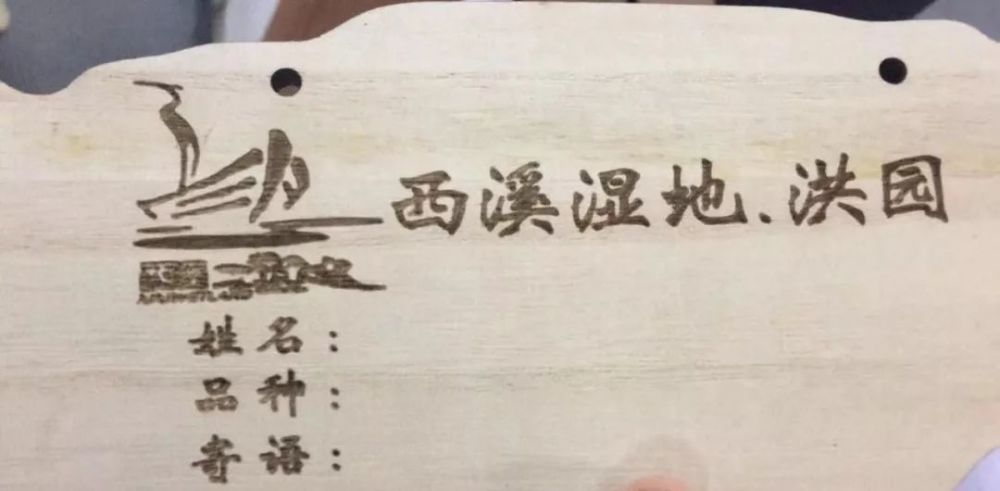 西溪湿地.洪园
姓名：
品种：
寄语：